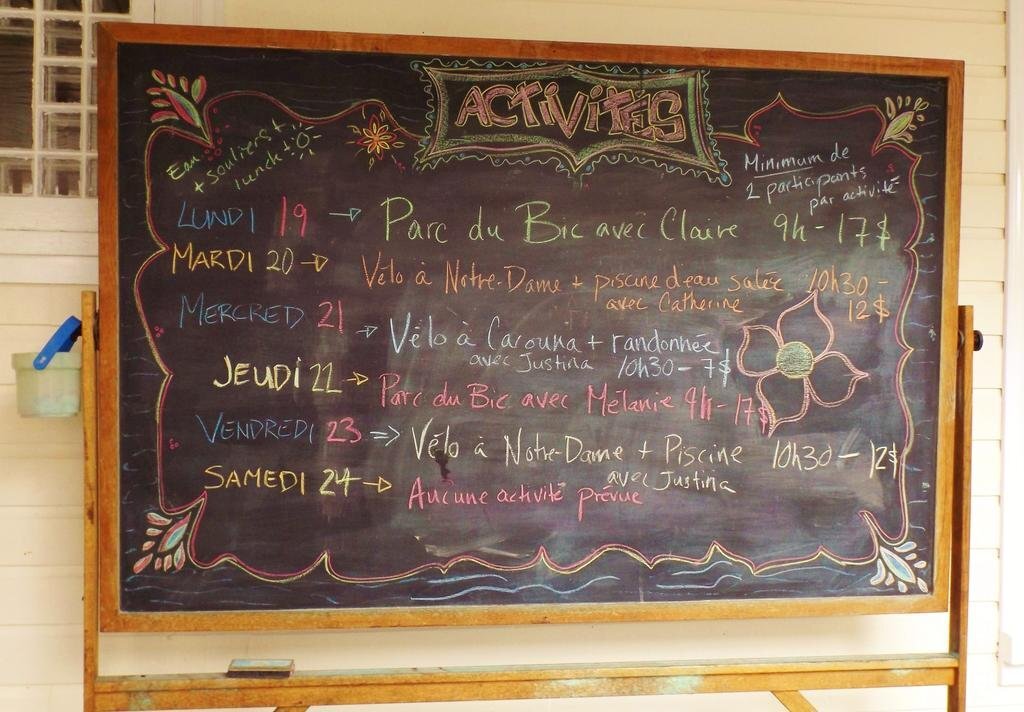 ACTIVITÉS
Eau + souliers +
lunch +
Minimum de
2 participants
par activité
LUNDI 19 → Parc du Bic avec Claire 9h - 17$
MARDI 20 → Vélo à Notre-Dame + piscine d'eau salée 10h30 -
avec Catherine 12$
MERCREDI 21 → Vélo à Carouna + randonnée
avec Justina 10h30 - 7$
JEUDI 22 → Parc du Bic avec Mélanie 9h - 17$
VENDREDI 23 => Vélo à Notre-Dame + Piscine 10h30 - 12$
avec Justina
SAMEDI 24 → Aucune activité prévue